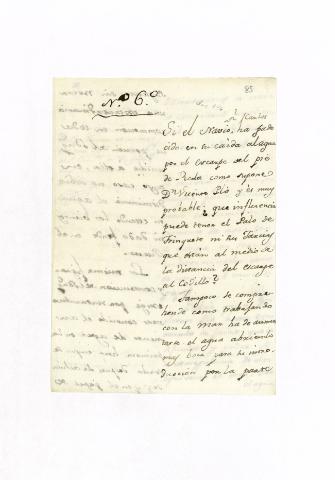 85
N.º 6.º
Sn. Carlos
Si el Navio, ha pade
cido en su caida al agua
por el escarpe del pié
de Roda como supone
Dn. Vicente Pló y es muy
probable; que influencia
puede tener el Palo de
Trinquete ni sus Jarcias
que están al medio de
la distancia del escarpe
al Codillo?
Tampoco se compre
hende como trabajando
con la mar ha de aumen
tarse el agua abriendo
muy boca para su intro-
duccion por la parte